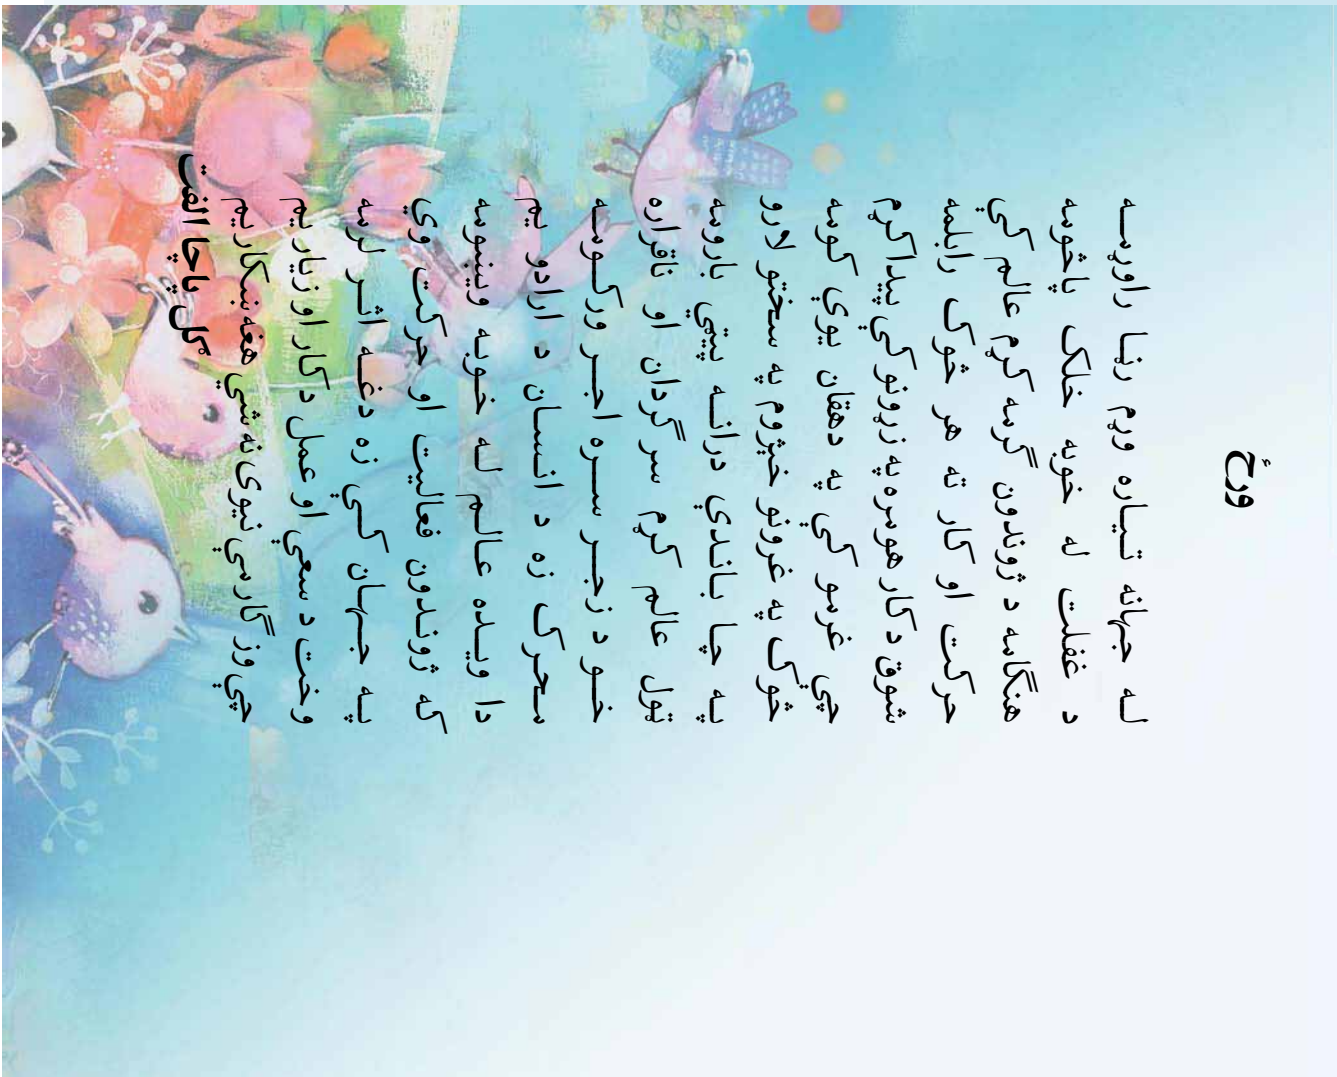 ورځ
له جهانه تياره وړم رڼا راوړمه
د غفلت له خوبه خلک پاڅومه
هنګامه د ژوندون ګرمه کړم عالم کې
حرکت او کار ته هر څوک رابلمه
شوق د کار هومره په زړونو کې پيدا کړم
چې غرمو کې په دهقان يوې کومه
څوک په غرونو خېژوم په سختو لارو
په چا باندې درانه پېټي بارومه
ټول عالم کړم سر ګردان او ناقراره
خو د زجر سره اجر ورکومه
محرک زه د انسان د ارادو يم
دا ويده عالم له خوبه وينبومه
که ژوندون فعاليت او حرکت وي
په جهان کې زه دغه اثر لرمه
وخت د سعې او عمل د کار او زيار يم
چې وزګار مې نيوی نه شي هغه ښکار يم
ګل پاچا الفت